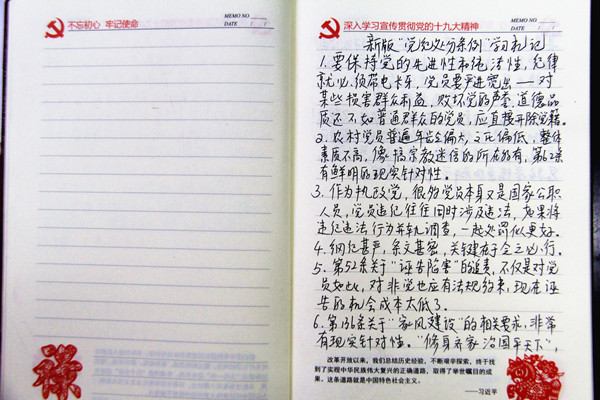 不忘初心 牢记使命
MEMO NO
DATE
深入学习宣传贯彻党的十九大精神
MEMO NO
DATE
新版“党纪处分条例”学习札记
1. 要保持党的先进性和纯洁性, 纪律
就必须带电长牙, 党员要严进宽出——对
某些损害群众利益, 败坏党的声誉, 道德品
质还不如普通群众的党员, 应直接开除党籍。
2. 农村党员普遍年龄偏大, 文化偏低, 整体
素质不高, 像搞宗教迷信的所在都有, 第62条
有鲜明的现实针对性。
3. 作为执政党, 很多党员本身又是国家公职
人员, 党员违纪往往同时涉及违法, 如果将
违纪违法行为并轨调查, 一起处罚似更好。
4. 纲纪甚严, 条文甚密, 关键在于令之必行。
5. 第52条关于“诬告陷害”的追责, 不仅是对党
员如此, 对非党也应有法规约束, 现在诬
告的机会成本太低了。
6. 第136条关于“家风建设”的相关要求, 非常
有现实针对性。“修身齐家治国平天下”,
改革开放以来，我们总结历史经验，不断艰辛探索，终于找
到了实现中华民族伟大复兴的正确道路，取得了举世瞩目的成
果。这条道路就是中国特色社会主义。
——习近平